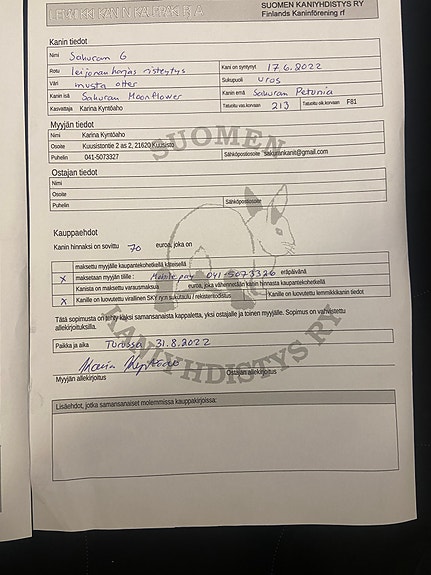 LEMMIKKIKANIN KAUPPAKIRJA
SUOMEN KANIYHDISTYS RY
Finlands Kaninförening rf
Kanin tiedot
Nimi Sakuran 6
Rotu leijonanharjas risteytys Kani on syntynyt 17.6.2022
Väri musta otter Sukupuoli uros
Kanin isä Sakuran Moonflower Kanin emä Sakuran Petunia
Kasvattaja Karina Kyntöaho Tatuoitu vas.korvaan 213 Tatuoitu oik.korvaan F81
Myyjän tiedot
Nimi Karina Kyntöaho
Osoite Kuusistontie 2 as 2, 21620 Kuusisto
Puhelin 041-5073327 Sähköpostiosoite sakurankanit@gmail.com
Ostajan tiedot
Nimi
Osoite
Puhelin Sähköpostiosoite
Kauppaehdot
Kanin hinnaksi on sovittu 70 euroa, joka on
maksettu myyjälle kaupantekohetkellä käteisellä
x maksetaan myyjän tilille : Mobilepay 041-5073326 eräpäivänä
Kanista on maksettu varausmaksua euroa, joka vähennetään kanin hinnasta kaupantekohetkellä
x Kanille on luovutettu virallinen SKY ry:n sukutaulu / rekisteritodistus Kanille on luovutettu lemmikkikanin tiedot
Tätä sopimusta on tehty kaksi samansanaista kappaletta, yksi ostajalle ja toinen myyjälle. Sopimus on vahvistettu
allekirjoituksilla.
Paikka ja aika Turussa 31.8.2022
Myyjän allekirjoitus Ostajan allekirjoitus
Lisäehdot, jotka samansanaiset molemmissa kauppakirjoissa:
SUOMEN
KANIYHDISTYS RY